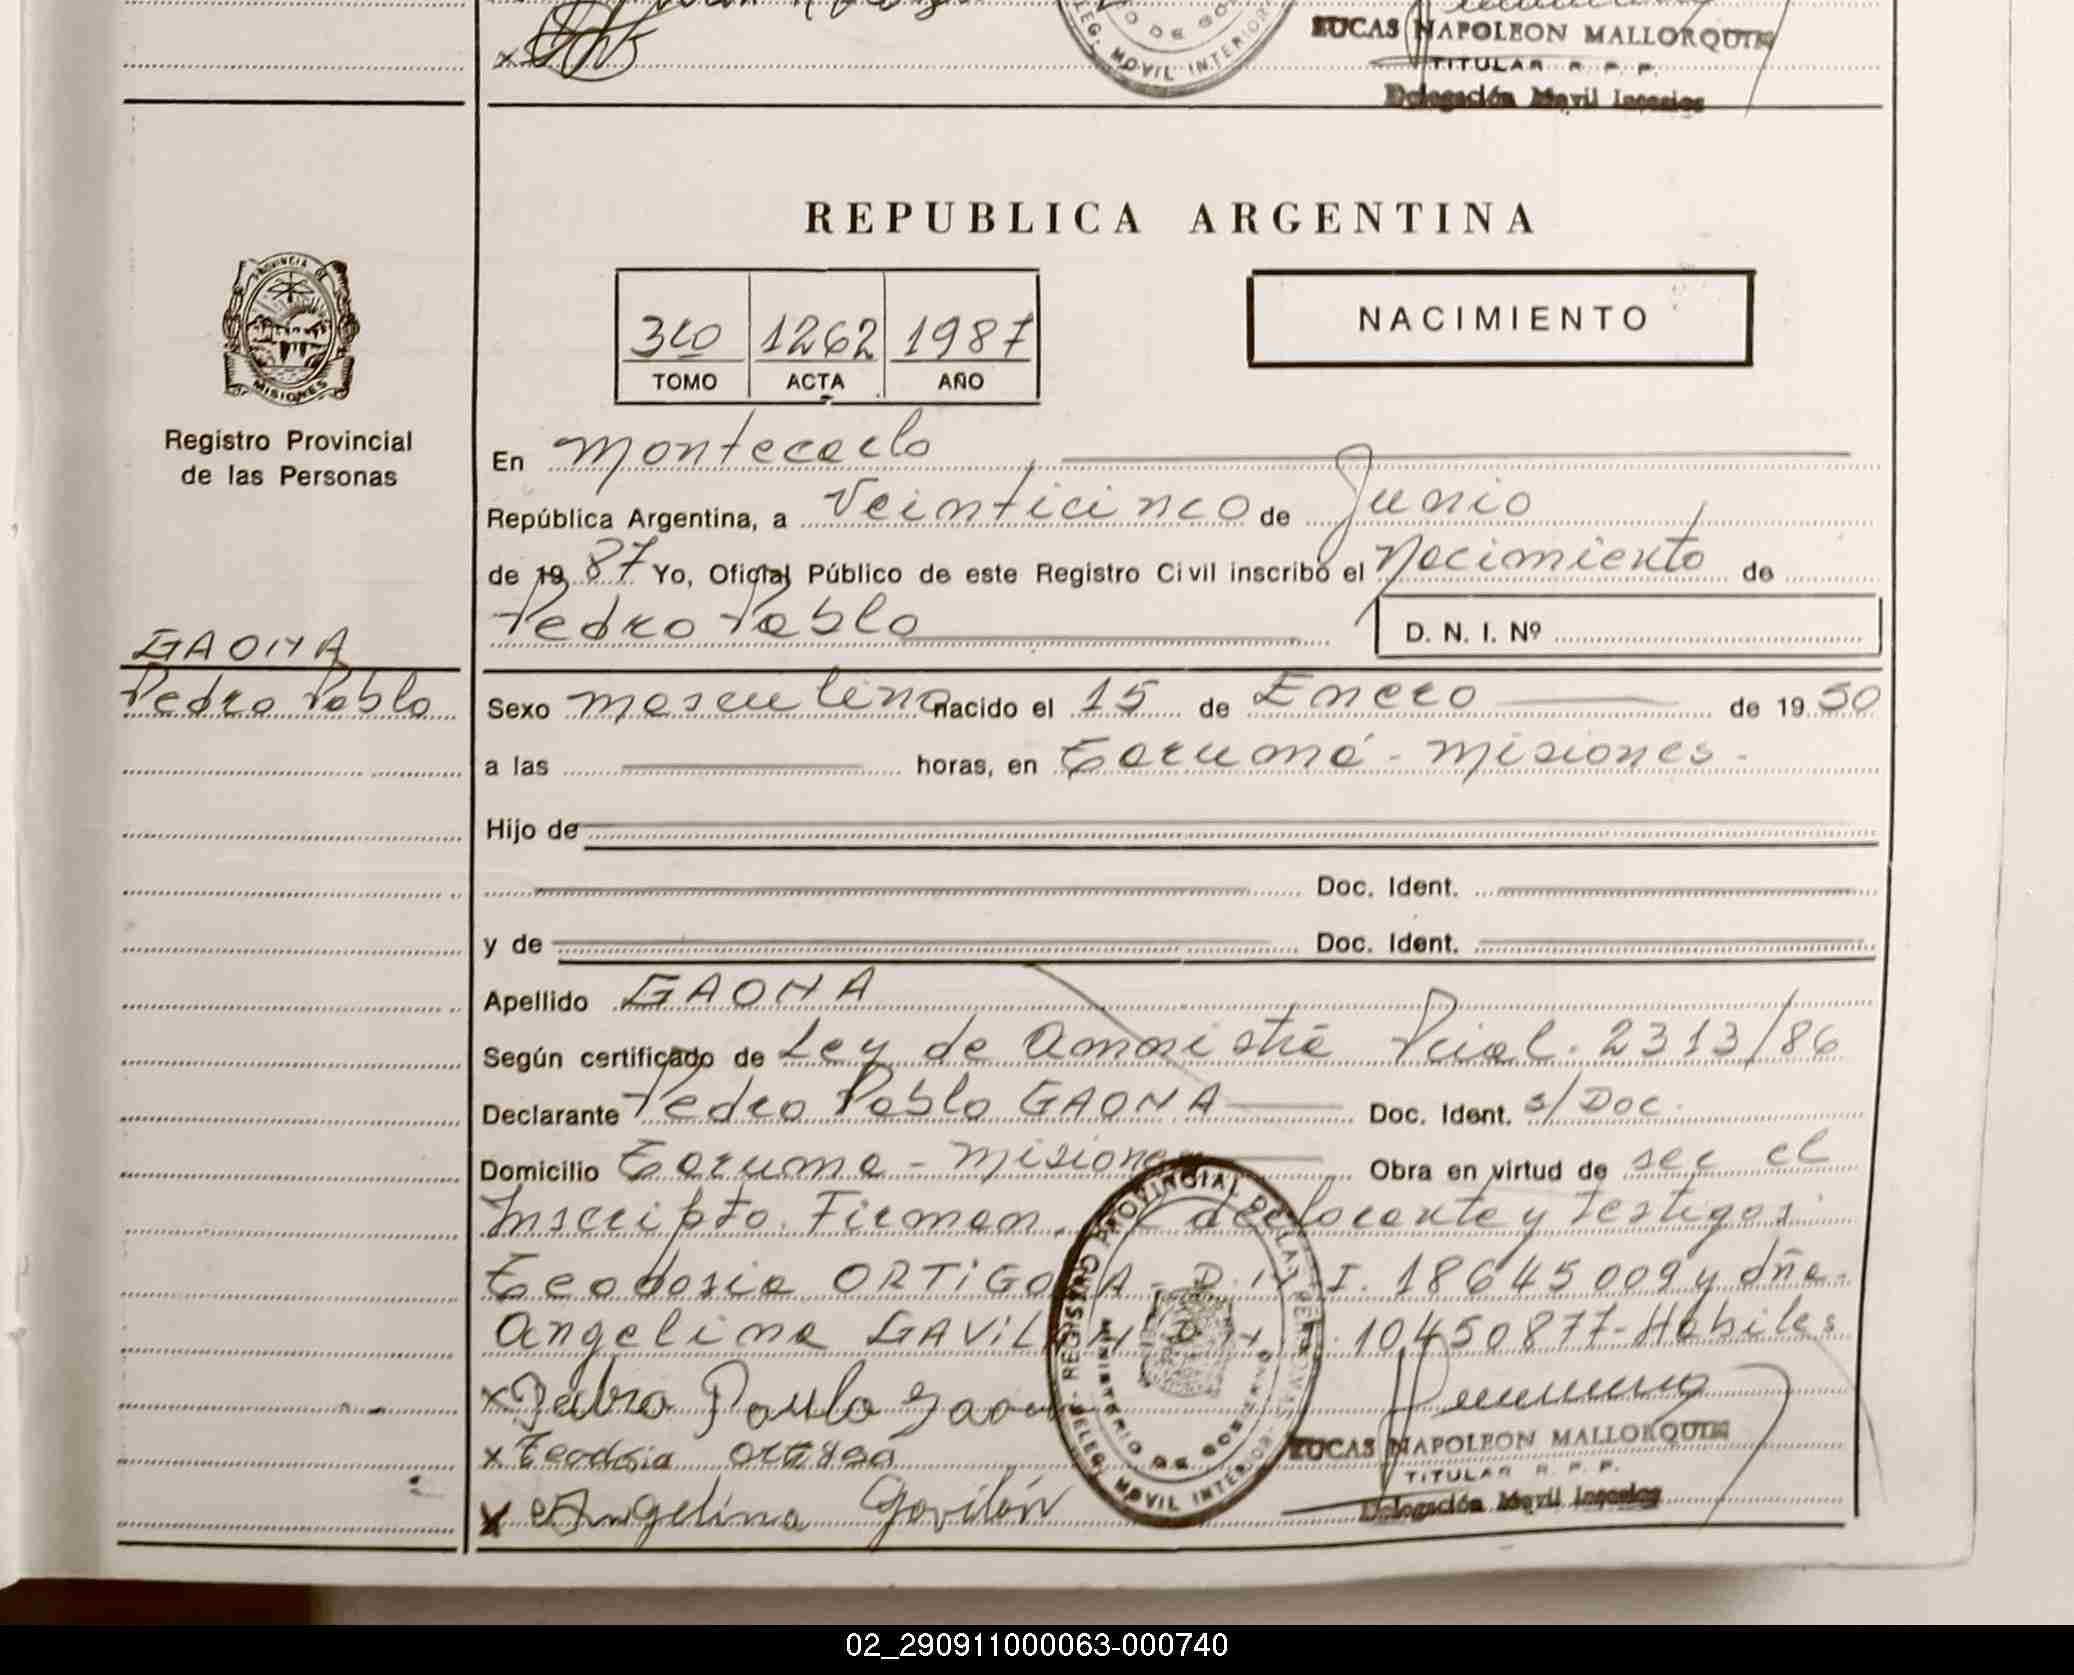 LUCAS NAPOLEON MALLORQUIN
TITULAR R. P. P.
Delegación Movil
DELEG. MOVIL INTERIOR
REPUBLICA ARGENTINA
PROVINCIA DE
MISIONES
Registro Provincial
de las Personas
3ro 1262 1987
TOMO ACTA AÑO
NACIMIENTO
En Montecarlo
República Argentina, a Veinticinco de Junio
de 1987 Yo, Oficial Público de este Registro Civil inscribo el Nacimiento de
Pedro Pablo
D. N. I. Nº
GAONA
Pedro Pablo
Sexo masculino nacido el 15 de Enero de 1950
a las horas, en Tarumá - Misiones -
Hijo de
Doc. Ident.
y de Doc. Ident.
Apellido GAONA
Según certificado de Ley de Amnistía Pcial. 2313/86
Declarante Pedro Pablo GAONA Doc. Ident. s/Doc.
Domicilio Taruma - Misiones Obra en virtud de ser el
Inscripto. Firman declarante y testigos:
Teodosia ORTIGOZA - D.N.I. 18645009 y dña.
Angelina GAVILAN D.N.I. 10450877- Hábiles
x Pedro Paulo Gaona
x Teodosia
x Angelina Gavilán
REGISTRO PROVINCIAL DE LAS PERSONAS
MINISTERIO DE GOBIERNO
DELEG. MOVIL INTERIOR
LUCAS NAPOLEON MALLORQUIN
TITULAR R. P. P.
Delegación Movil
02_290911000063-000740